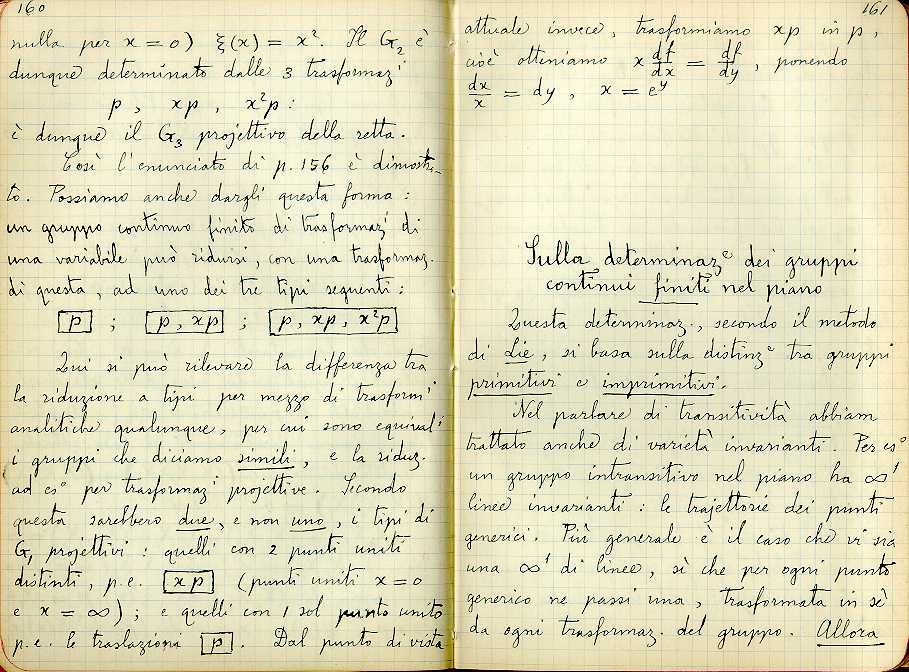 160
nulla per x = 0) ξ(x) = x². Il G₂ è
dunque determinato dalle 3 trasformazⁱ
p , xp , x²p :
è dunque il G₃ projettivo della retta.
Così l'enunciato di p. 156 è dimostra-
to. Possiamo anche dargli questa forma :
un gruppo continuo finito di trasformazⁱ di
una variabile può ridursi, con una trasformaz.
di questa, ad uno dei tre tipi seguenti :
p ; p, xp ; p, xp, x²p
Qui si può rilevare la differenza tra
la riduzione a tipi per mezzo di trasformⁱ
analitiche qualunque, per cui sono equivalⁱ
i gruppi che diciamo simili, e la riduz.
ad esº per trasformazⁱ projettive. Secondo
questa sarebbero due, e non uno, i tipi di
G₁ projettivi : quelli con 2 punti uniti
distinti, p.e. xp (punti uniti x = 0
e x = ∞) ; e quelli con 1 sol punto unito
p.e. le traslazioni p . Dal punto di vista
161
attuale invece, trasformiamo xp in p,
cioè otteniamo x df/dx = df/dy , ponendo
dx/x = dy , x = e^y
Sulla determinazᵉ dei gruppi
continui finiti nel piano
Questa determinaz., secondo il metodo
di Lie, si basa sulla distinzᵉ tra gruppi
primitivi e imprimitivi.
Nel parlare di transitività abbiam
trattato anche di varietà invarianti. Per esº
un gruppo intransitivo nel piano ha ∞¹
linee invarianti : le trajettorie dei punti
generici. Più generale è il caso che vi sia
una ∞¹ di linee, sì che per ogni punto
generico ne passi una, trasformata in sè
da ogni trasformaz. del gruppo. Allora